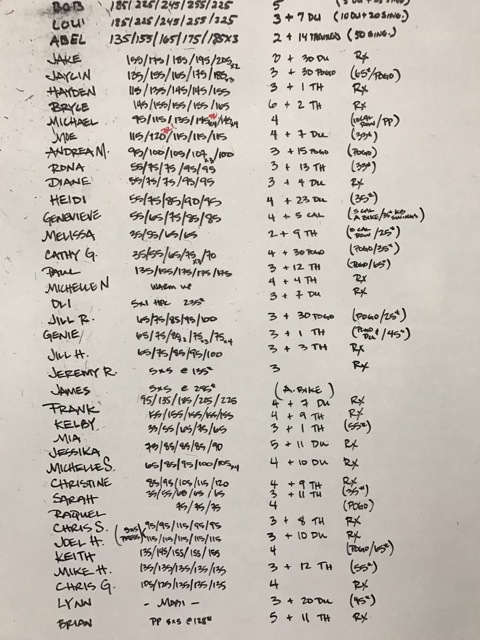 BOB 185/225/245/255/225 5
LOUI 185/225/245/255/225 3 + 7 DU (10 DU + 20 SING.)
ABEL 135/155/165/175/185x3 2 + 14 (50 SING.)
JAKE 155/175/185/195/205x2 0 + 30 DU Rx
JAYLIN 135/155/165/175/185x3 3 + 30 POGO (65#/POGO)
HAYDEN 115/135/145/145/155 3 + 1 TH Rx
BRYCE 145/155/155/155/165 6 + 2 TH Rx
MICHAEL 95/115/135/145x4/145x4 4 (10 CAL ROW/PP)
MOE 115/120/115/115/115 4 + 7 DU (35#)
ANDREA M. 95/100/105/107x3/100 3 + 15 POGO (POGO)
RONA 55/75/75/95/95 3 + 13 TH (35#)
DIANE 55/75/75/95/95 3 + 4 DU Rx
HEIDI 55/75/85/90/95 4 + 23 DU (35#)
GENEVIEVE 55/65/75/85/85 4 + 5 CAL (5 CAL A BIKE/35# KB SWINGS)
MELISSA 35/55/65/65 2 + 9 TH (10 CAL ROW/25#)
CATHY G. 35/55/65/75x2/70 4 + 30 POGO (POGO/35#)
PAUL 135/155/175/175/175 3 + 12 TH (POGO/65#)
MICHELLE N WARM UP 4 + 4 TH Rx
OLI 5x1 HPC 235# 3 + 7 DU Rx
JILL R. 65/75/85/95/100 3 + 30 POGO (POGO/25#)
GENIE 65/75/80x3/75x3/75x4 3 + 1 TH (POGO DU/45#)
JILL H. 65/75/85/95/100 3 + 3 TH Rx
JEREMY R. 5x5 @ 135# 3 Rx
JAMES 5x5 @ 245# (A.BIKE)
FRANK 95/135/185/205/225 4 + 7 DU Rx
KELBY 155/155/155/155/155 4 + 9 TH Rx
MIA 35/55/65/75/65 3 + 1 TH (55#)
JESSIKA 75/85/85/85/90 5 + 11 DU Rx
MICHELLE S. 65/85/95/100/105x4 4 + 10 DU Rx
CHRISTINE 85/95/105/115/120 4 + 9 TH Rx
SARAH 35/55/60/65/65 3 + 11 TH (35#)
RAQUEL 75/75/75 4 (POGO)
CHRIS S. (5x5 PRESS) 95/95/115/95/95 3 + 8 TH Rx
JOEL H. 115/115/115/115/115 3 + 10 DU Rx
KEITH 135/145/155/155/155 4 (POGO/65#)
MIKE H. 135/135/135/135/135 3 + 12 TH (55#)
CHRIS G. 105/125/135/135/135 4 Rx
LYNN - MOBI - 3 + 20 DU (45#)
BRIAN PP 5x5 @ 125# 5 + 11 TH Rx